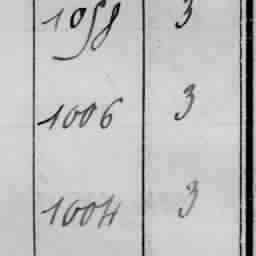 1058 3
1006 3
1004 3